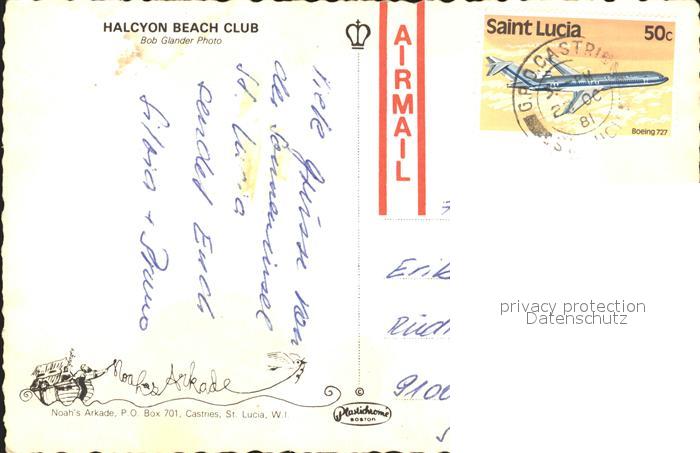 HALCYON BEACH CLUB
Bob Glander Photo
Viele Grüsse von
der Sonneninsel
St. Lucia
sendet Euch
Silvia + Bruno
Noah's Arkade
Noah's Arkade, P.O. Box 701, Castries, St. Lucia, W.I.
©
Plastichrome
BOSTON
AIRMAIL
Saint Lucia 50c
G.P.O. CASTRIES
OC
81
ST. LUCIA
Boeing 727
Erik
Rüdi
9100
privacy protection
Datenschutz